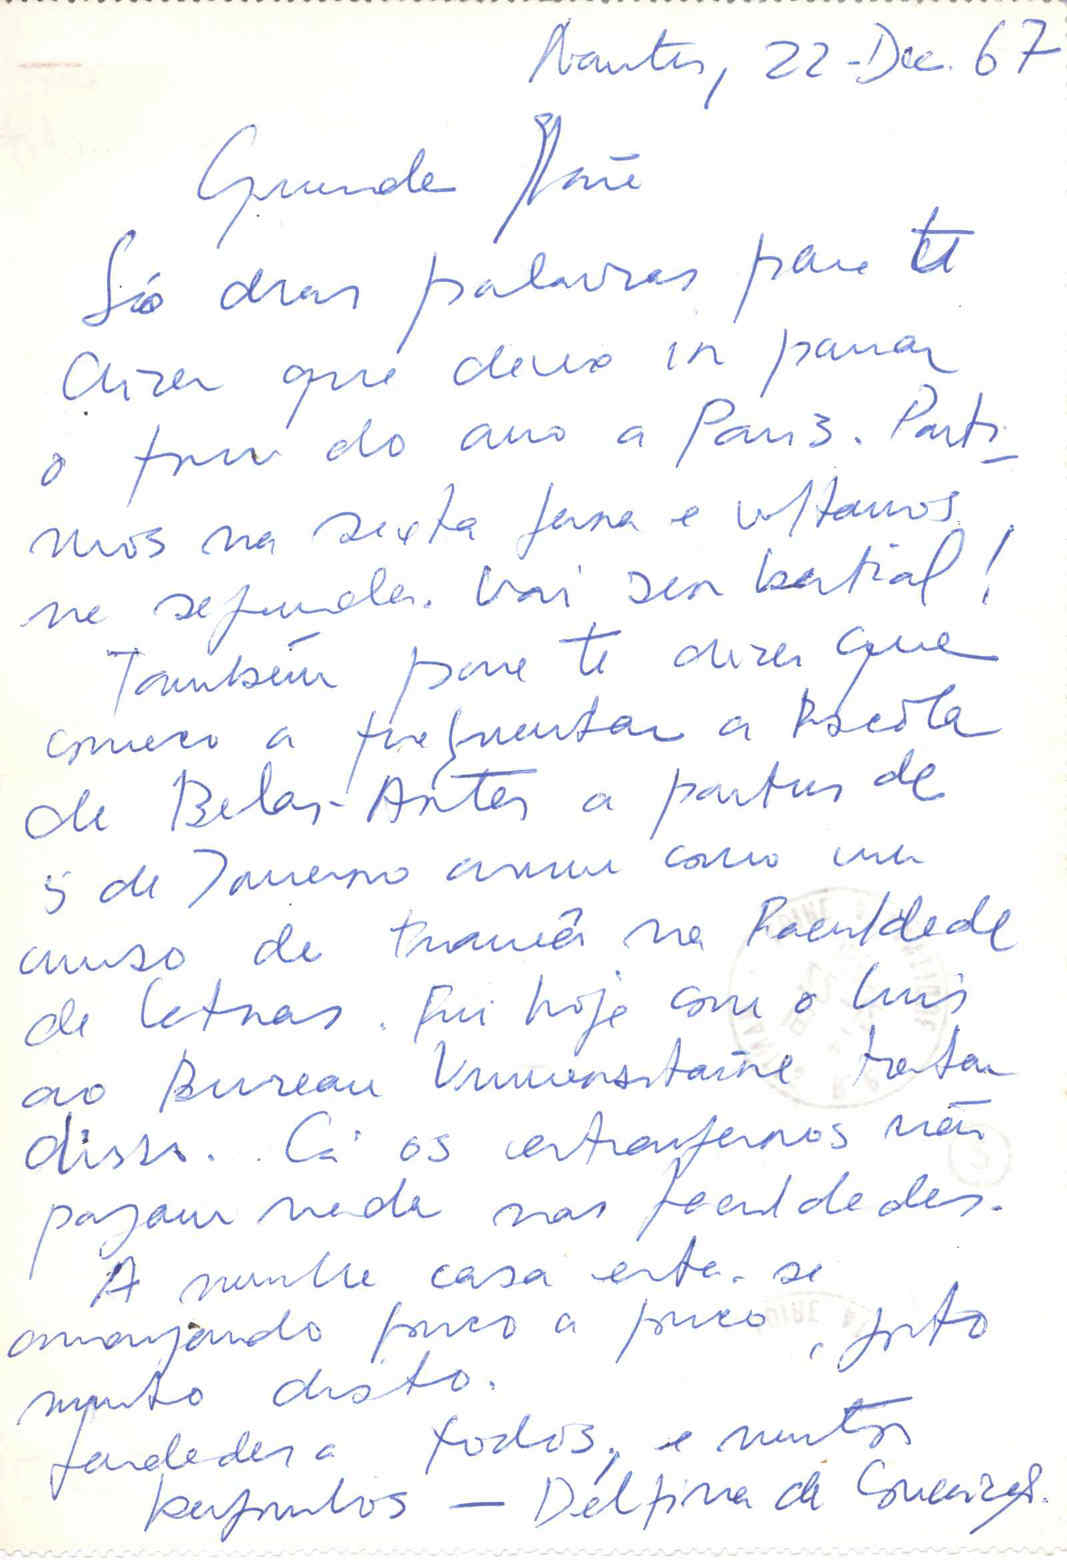 Nantes, 22-Dec. 67
Grande
Só duas palavras para te
dizer que devo ir passar
o fim do ano a Paris. Parti-
mos na sexta feira e voltamos
na segunda. Vai ser bestial!
Também para te dizer que
começo a frequentar a Escola
de Belas-Artes a partir de
5 de Janeiro assim como um
curso de francês na Faculdade
de Letras. Fui hoje com o Luis
ao Bureau Universitaire tratar
disso. Cá os estrangeiros não
pagam nada nas faculdades.
A minha casa está-se
arranjando pouco a pouco, gosto
muito disto.
Saudades a todos, e muitos
beijinhos — Delfina de